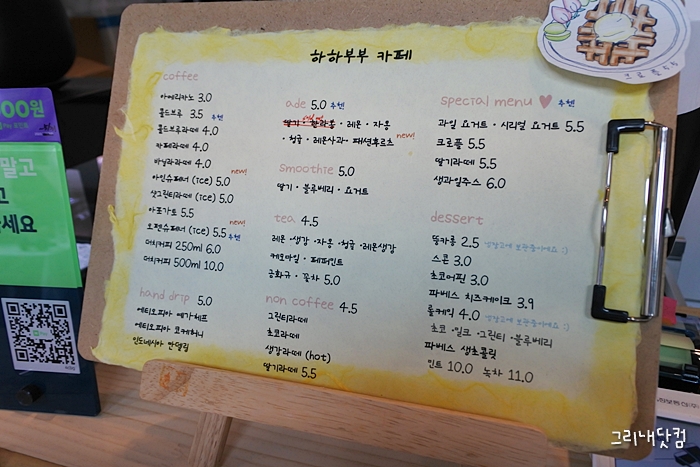 하하부부 카페
coffee
아메리카노 3.0
콜드브루 3.5 추천
콜드브루라떼 4.0
카페라떼 4.0
바닐라라떼 4.0
아인슈페너 (ice) 5.0 new!
샷그린티라떼 (ice) 5.0
아포가토 5.5
오렌슈페너 (ice) 5.5 new! 추천
더치커피 250ml 6.0
더치커피 500ml 10.0
hand drip 5.0
에티오피아 예가체프
에티오피아 코케허니
인도네시아 만델링
ade 5.0 추천
딸기 · 한라봉 · 레몬 · 자몽
· 청귤 · 레몬사과 · 패션후르츠 new!
smoothie 5.0
딸기 · 블루베리 · 요거트
tea 4.5
레몬 · 생강 · 자몽 · 청귤 · 레몬생강
캐모마일 · 페퍼민트
금화규 · 꽃차 5.0
non coffee 4.5
그린티라떼
초코라떼
생강라떼 (hot)
딸기라떼 5.5
special menu 추천
과일 요거트 · 시리얼 요거트 5.5
크로플 5.5
딸기라떼 5.5
생과일주스 6.0
dessert
뚱카롱 2.5 냉장고에 보관중이에요 :)
스콘 3.0
초코머핀 3.0
파베스 치즈케이크 3.9
롤케익 4.0 냉장고에 보관중이에요 :)
초코 · 밀크 · 그린티 · 블루베리
파베스 생초콜릿
민트 10.0 녹차 11.0
크로플 5.5
00원
말고
고
세요
그리내닷컴